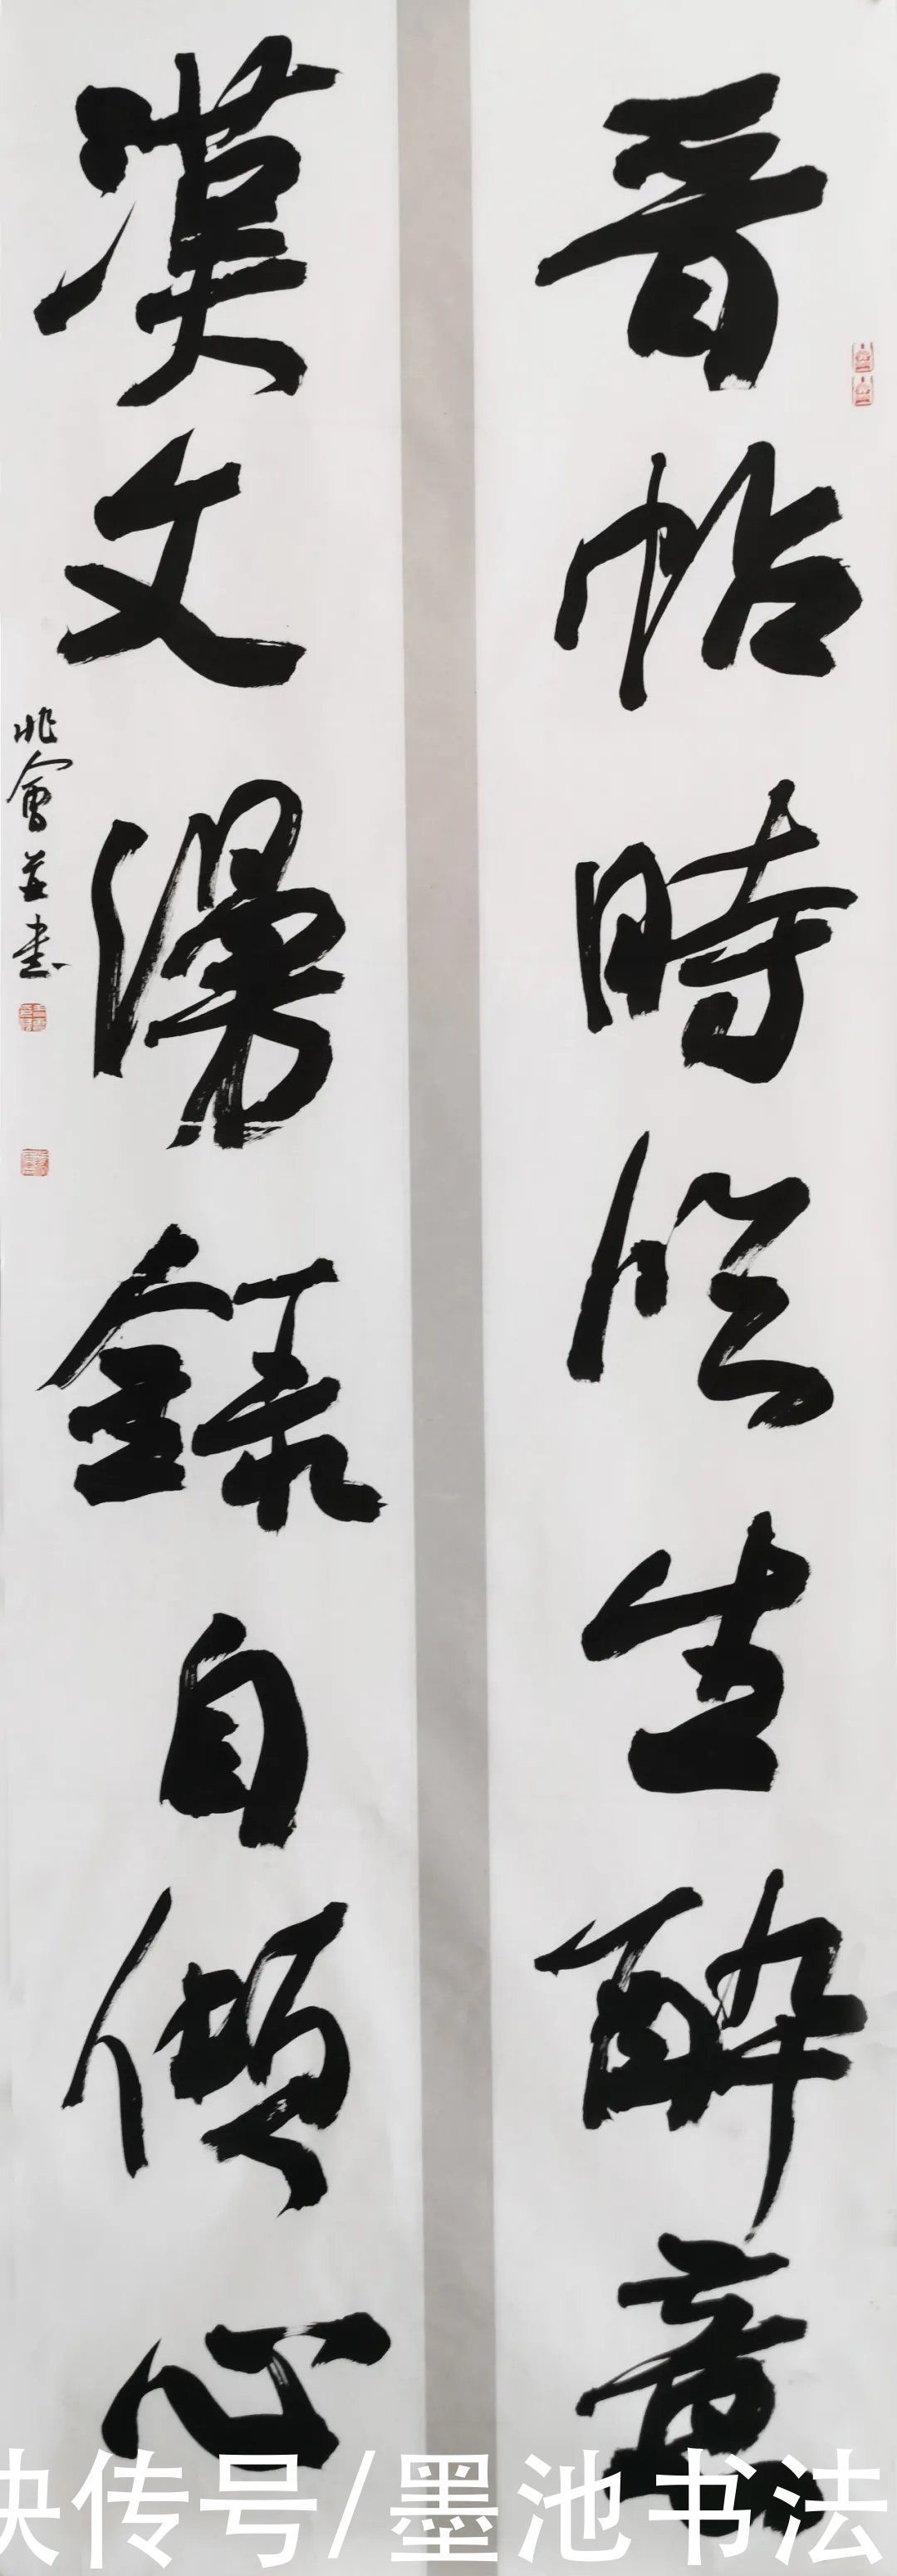 晋帖時临生醉意
漢文漫録自傾心
兆會并書
快传号/墨池书法